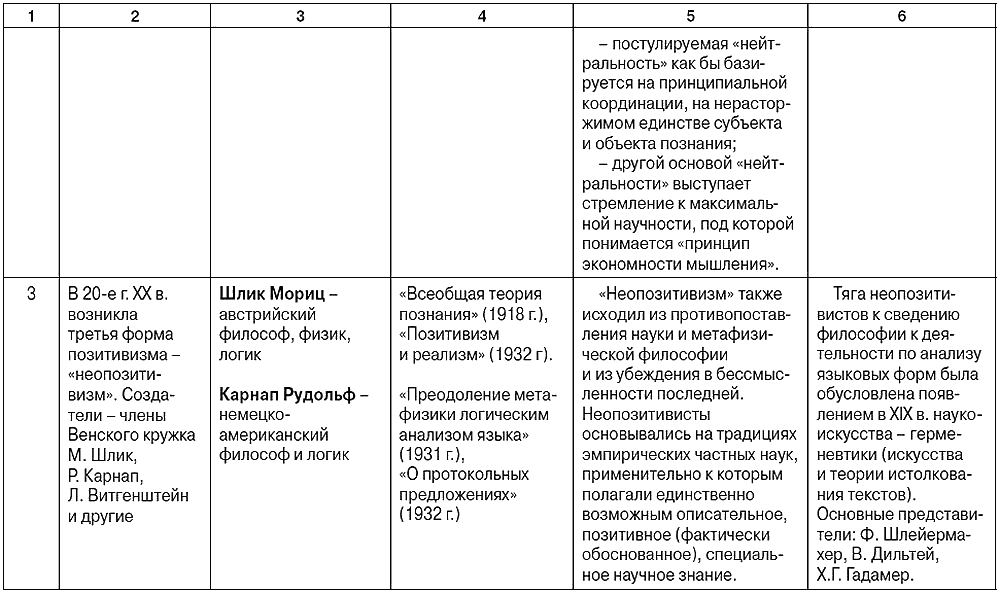 1 2 3 4 5 6
– постулируемая «нейт-
ральность» как бы бази-
руется на принципиальной
координации, на нерастор-
жимом единстве субъекта
и объекта познания;
– другой основой «нейт-
ральности» выступает
стремление к максималь-
ной научности, под которой
понимается «принцип
экономности мышления».
3
В 20-е г. XX в.
возникла
третья форма
позитивизма –
«неопозити-
визм». Созда-
тели – члены
Венского кружка
М. Шлик,
Р. Карнап,
Л. Витгенштейн
и другие
Шлик Мориц –
австрийский
философ, физик,
логик
Карнап Рудольф –
немецко-
американский
философ и логик
«Всеобщая теория
познания» (1918 г.),
«Позитивизм
и реализм» (1932 г).
«Преодоление мета-
физики логическим
анализом языка»
(1931 г.),
«О протокольных
предложениях»
(1932 г.)
«Неопозитивизм» также
исходил из противопостав-
ления науки и метафизи-
ческой философии
и из убеждения в бессмыс-
ленности последней.
Неопозитивисты
основывались на традициях
эмпирических частных наук,
применительно к которым
полагали единственно
возможным описательное,
позитивное (фактически
обоснованное), специаль-
ное научное знание.
Тяга неопозити-
вистов к сведению
философии к дея-
тельности по анализу
языковых форм была
обусловлена появ-
лением в XIX в. науко-
искусства – герме-
невтики (искусства
и теории истолкова-
ния текстов).
Основные представи-
тели: Ф. Шлейерма-
хер, В. Дильтей,
Х.Г. Гадамер.